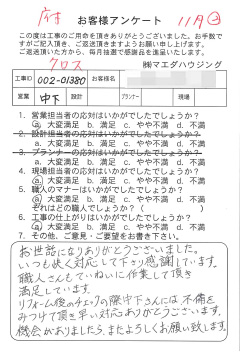 府中
お客様アンケート
11月
この度は工事のご用命を頂きありがとうございました。お手数で
すがご記入頂き、ご返送頂きますようお願い申し上げます。
ご返送頂いた方から、毎月抽選で感謝品を進呈いたします。
クロス
㈱マエダハウジング
工事ID 002-01380 お客様名
営業 中下 設計 プランナー 現場
1. 営業担当者の応対はいかがでしたでしょうか?
a. 大満足 b. 満足 c. やや不満 d. 不満
2. 設計担当者の応対はいかがでしたでしょうか?
a. 大満足 b. 満足 c. やや不満 d. 不満
3. プランナーの応対はいかがでしたでしょうか?
a. 大満足 b. 満足 c. やや不満 d. 不満
4. 現場担当者の応対はいかがでしたでしょうか?
a. 大満足 b. 満足 c. やや不満 d. 不満
5. 職人のマナーはいかがでしたでしょうか?
a. 大満足 b. 満足 c. やや不満 d. 不満
それはどの職人でしょうか?( )
6. 工事の仕上がりはいかがでしたでしょうか?
a. 大満足 b. 満足 c. やや不満 d. 不満
7. その他、ご意見・ご要望をお書き下さい。
お世話になりありがとうございました。
いつも快く対応して下さり感謝しています。
職人さんもていねいに作業して頂き
満足しています。
リフォーム後のチェックの際中下さんには不備を
みつけて頂き早い対応ありがとうございます。
機会がありましたら、またよろしくお願い致します。